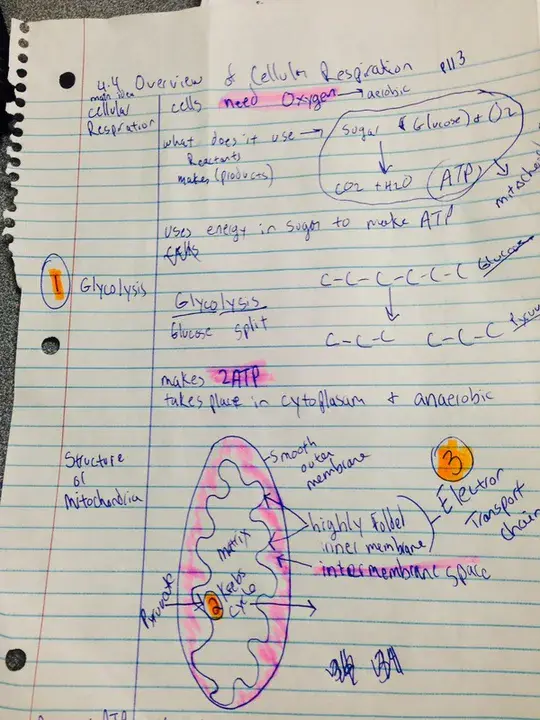 4.4 Overview of Cellular Respiration p113
main idea
cellular
Respiration
cells need Oxygen → aerobic
what does it use → Sugar (Glucose) + O2
Reactants
makes (products)
CO2 + H2O ATP
uses energy in sugar to make ATP
1 Glycolysis
C-C-C-C-C-C Glucose
Glycolysis
Glucose split
C-C-C C-C-C
makes 2ATP
takes place in cytoplasum + anaerobic
Structure
of
Mitochondria
Smooth
outer
membrane
3
Electron
Transport
chain
highly folded
inner membrane
intermembrane space
matrix
Pyruvate
2 Krebs
cycle